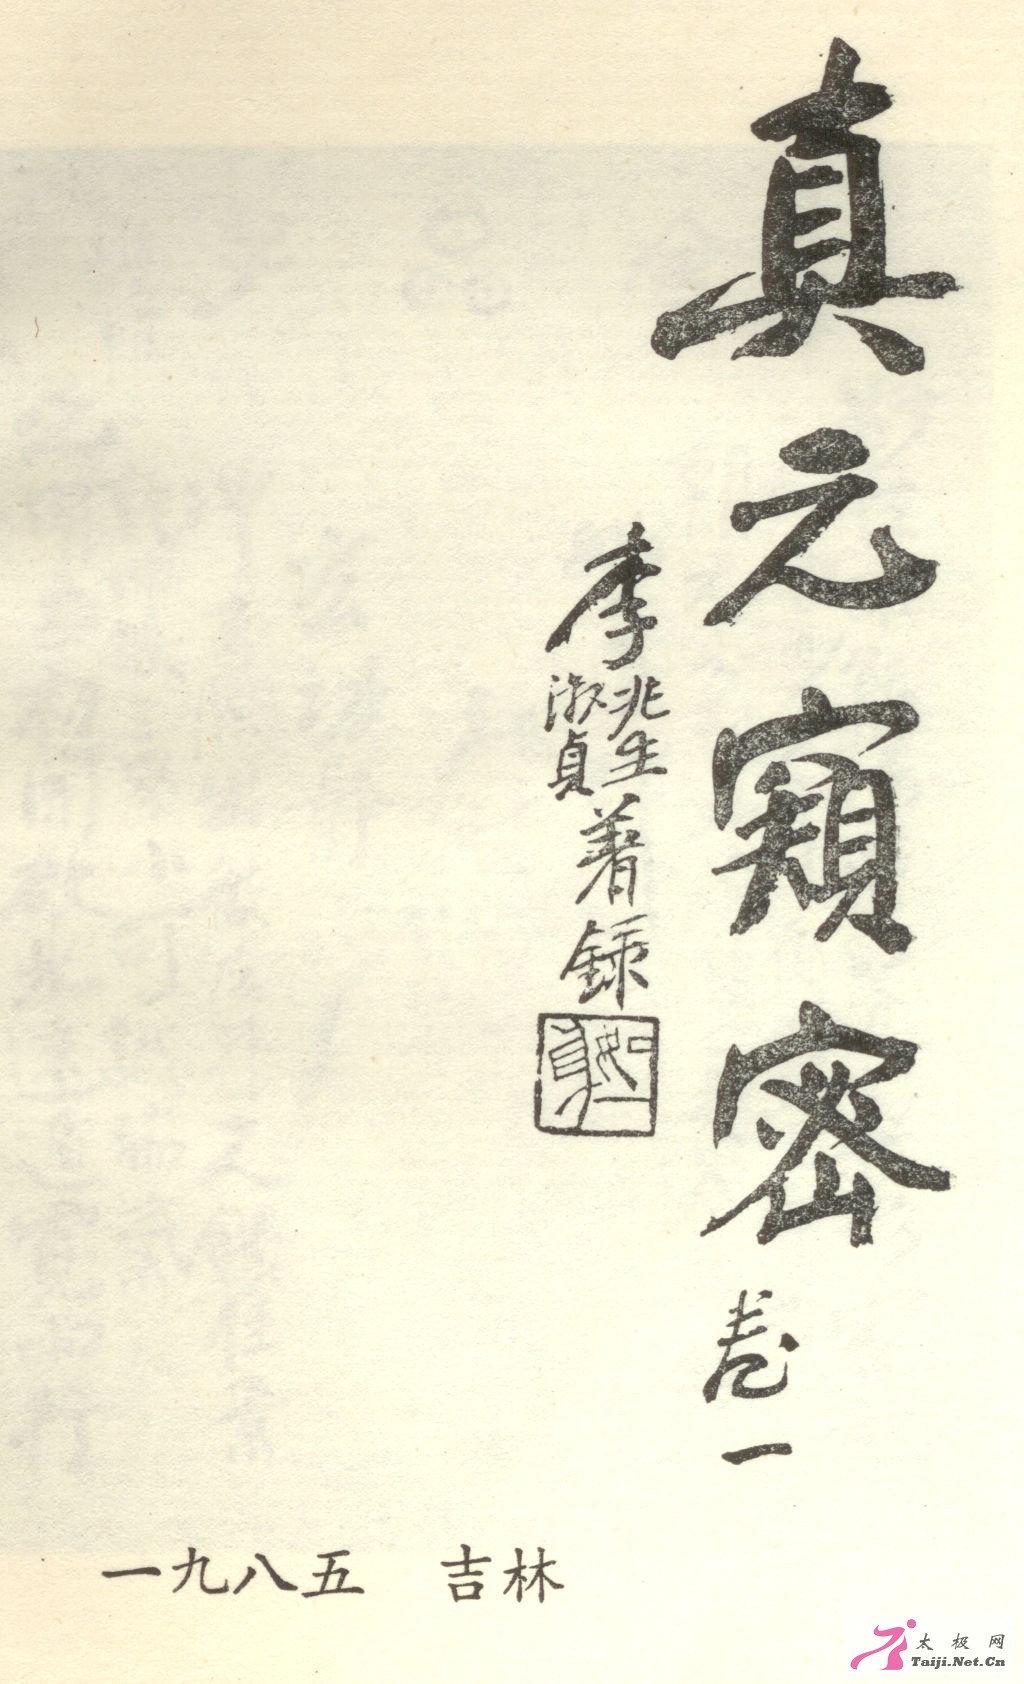 真元窺密卷一
李兆生淑貞著録
一九八五 吉林
太极网
Taiji.Net.Cn